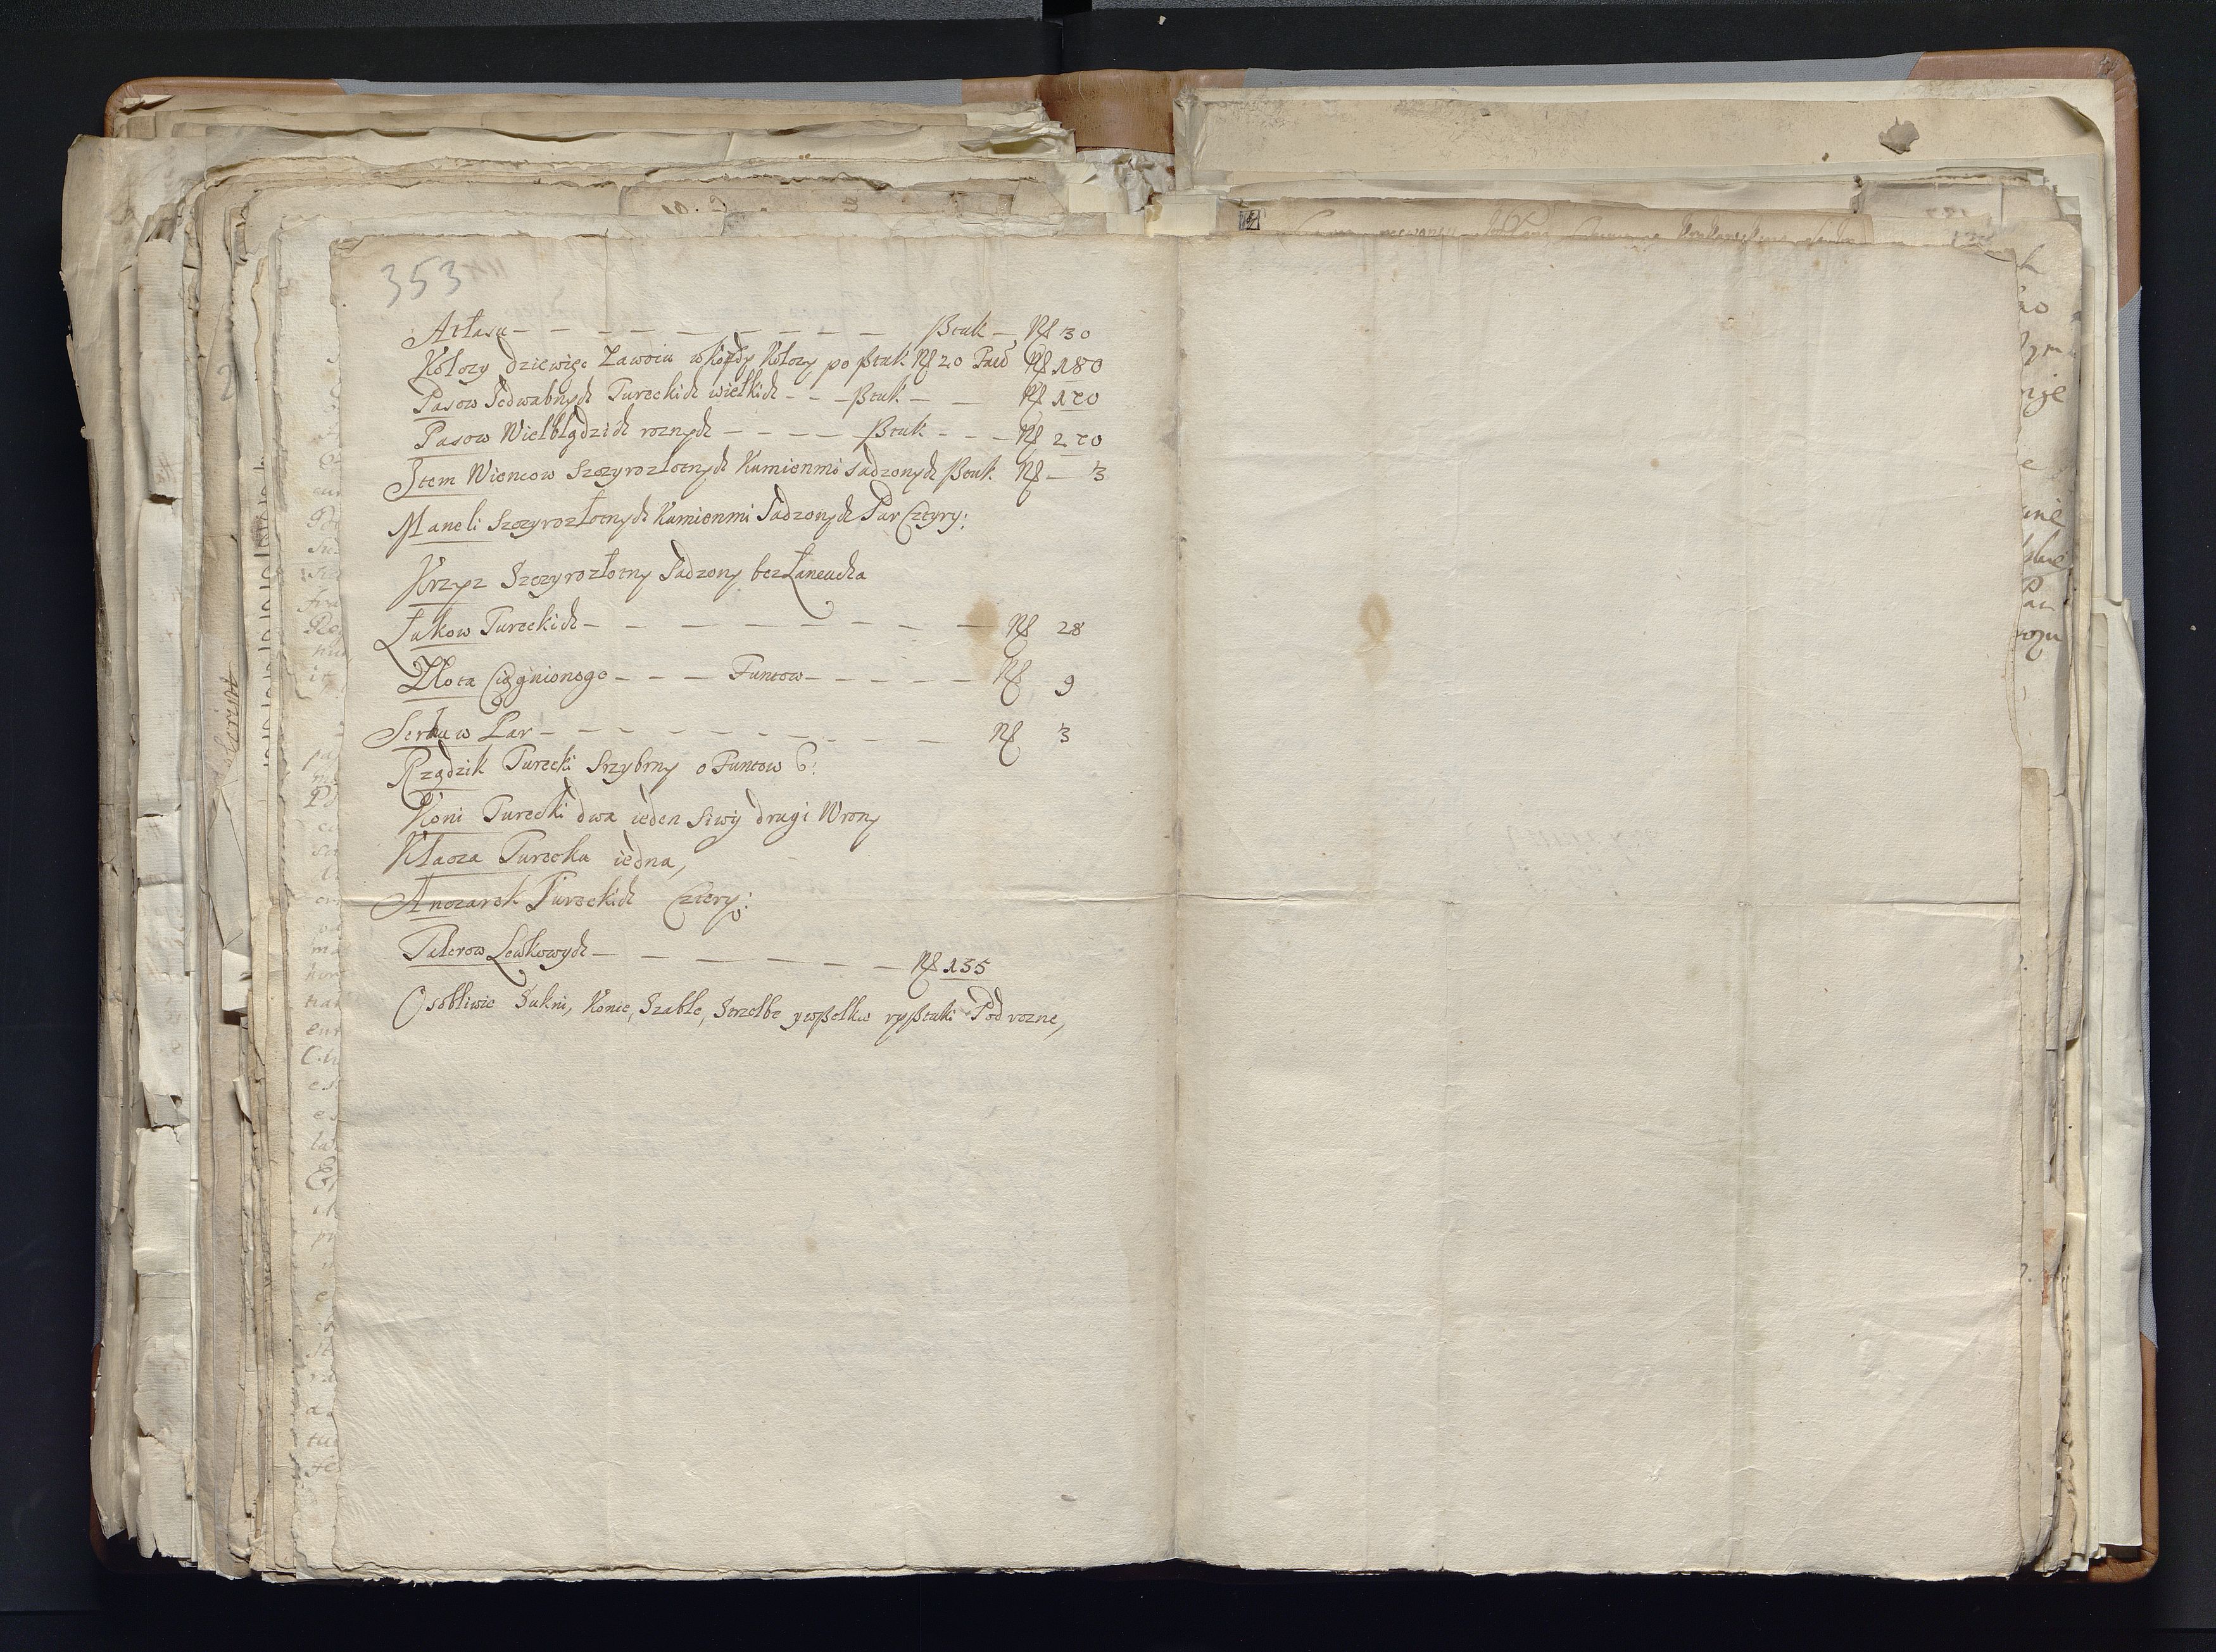 353
Atłasu — — — — — — — — — ßtuk — Nṙ 30
Kołozy dziewięc Zawoiu w kożdy Kołozy po ßtuk Nṙ 20 Nṙ 180
Pasow Jedwabnych Tureckich wielkich - - - ßtuk — — Nṙ 170
Pasow Wielbłądzich roznych — — — — ßtuk - - - Nṙ 270
Item Wiencow Szczyrozłotnych Kamienmi Sadzonych ßtuk Nṙ — 3
Maneli Szczyrozłotnych Kamienmi Sadzonych Par Cztyry:
Krzyz Szczyrozłotny Sadzony bez Łancucha
Łukow Tureckich — — — — — — — — — Nṙ 28
Złota Ciągnionego — — — Funtow — — — — — Nṙ 9
Par — — — — — — — — Nṙ 3
Rządzik Turecki Srzybrny o Funtow 6:
Koni Turecki dwa ieden Siwy drugi Wrony
Klacza Turecka iedna,
Anczarek Tureckich Cztery:
Talerow Lewkowych — — — — — — — Nṙ 135
Osobliwie Sukni, Konie, Szable, Strzelbe y wßelkie ryßtuki Podrozne,